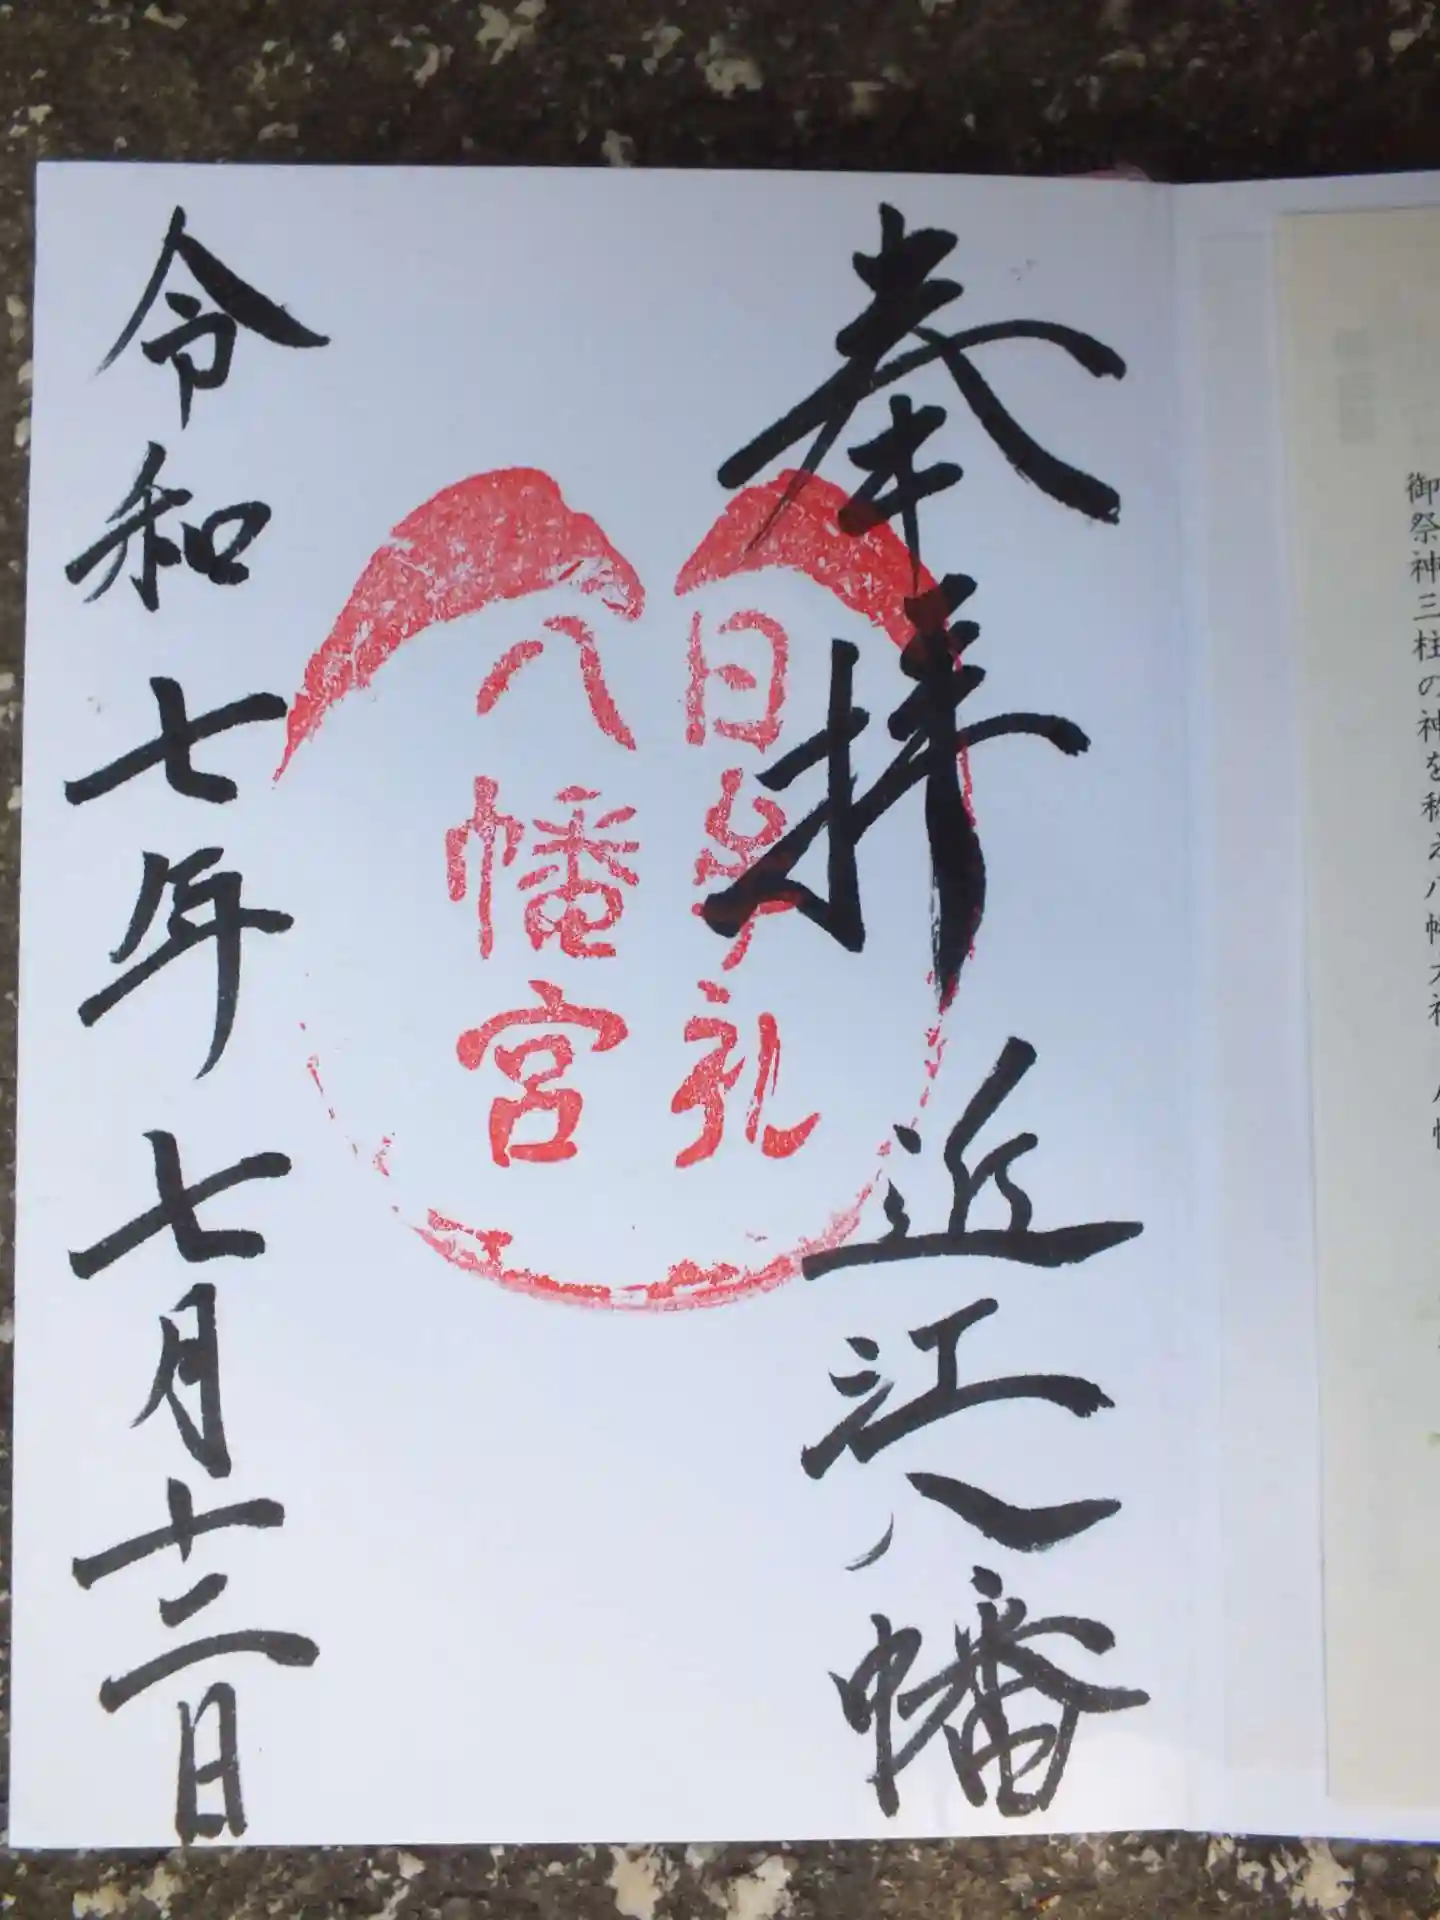 御祭神三柱の神を称え八幡大神
奉拝 近江八幡
日牟礼
八幡宮
令和七年七月十二日